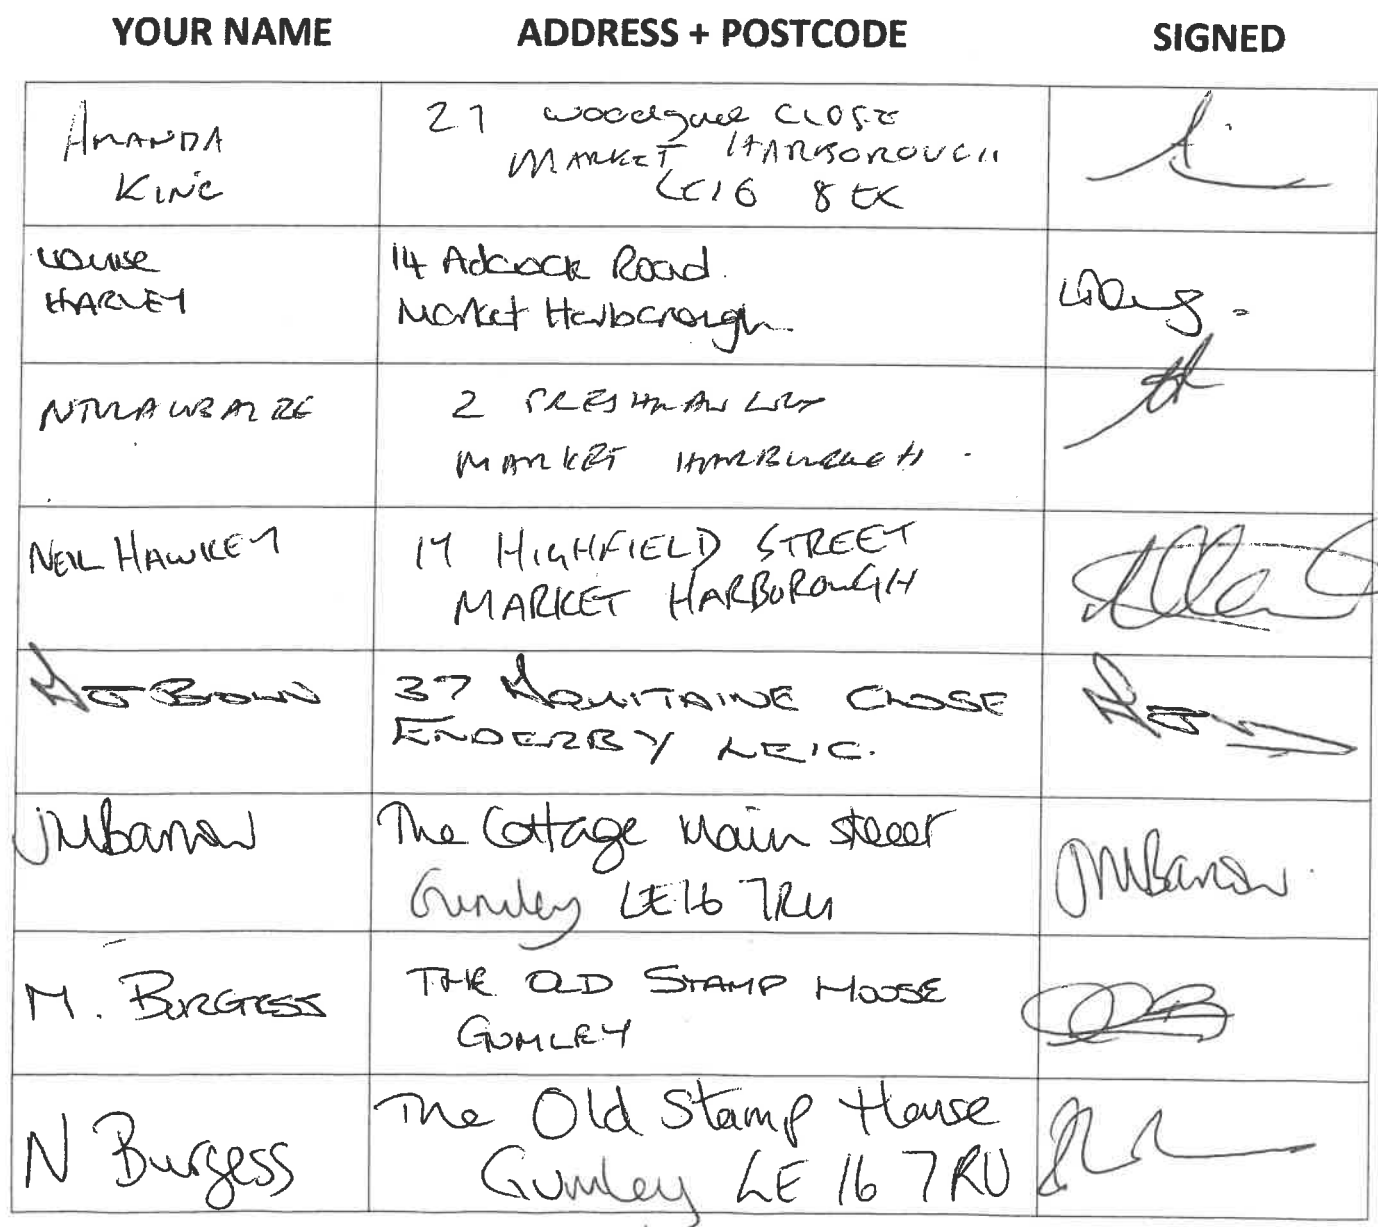 YOUR NAME ADDRESS + POSTCODE SIGNED
AMANDA
KING
27 CLOSE
MARKET HARBOROUGH
LE16 8EX
LOUISE
HARLEY
14 Adcock Road.
Market Harborough.
2
MARKET HARBOROUGH.
NEIL HAWKEY
17 HIGHFIELD STREET
MARKET HARBOROUGH
BROWN
37 AQUITAINE CLOSE
ENDERBY LEIC.
JMBarrow
The Cottage Main Street
Gumley LE16 7RU
JMBarrow.
M. BURGESS
THE OLD STAMP HOUSE
GUMLEY
N Burgess
The Old Stamp House
Gumley LE16 7RU